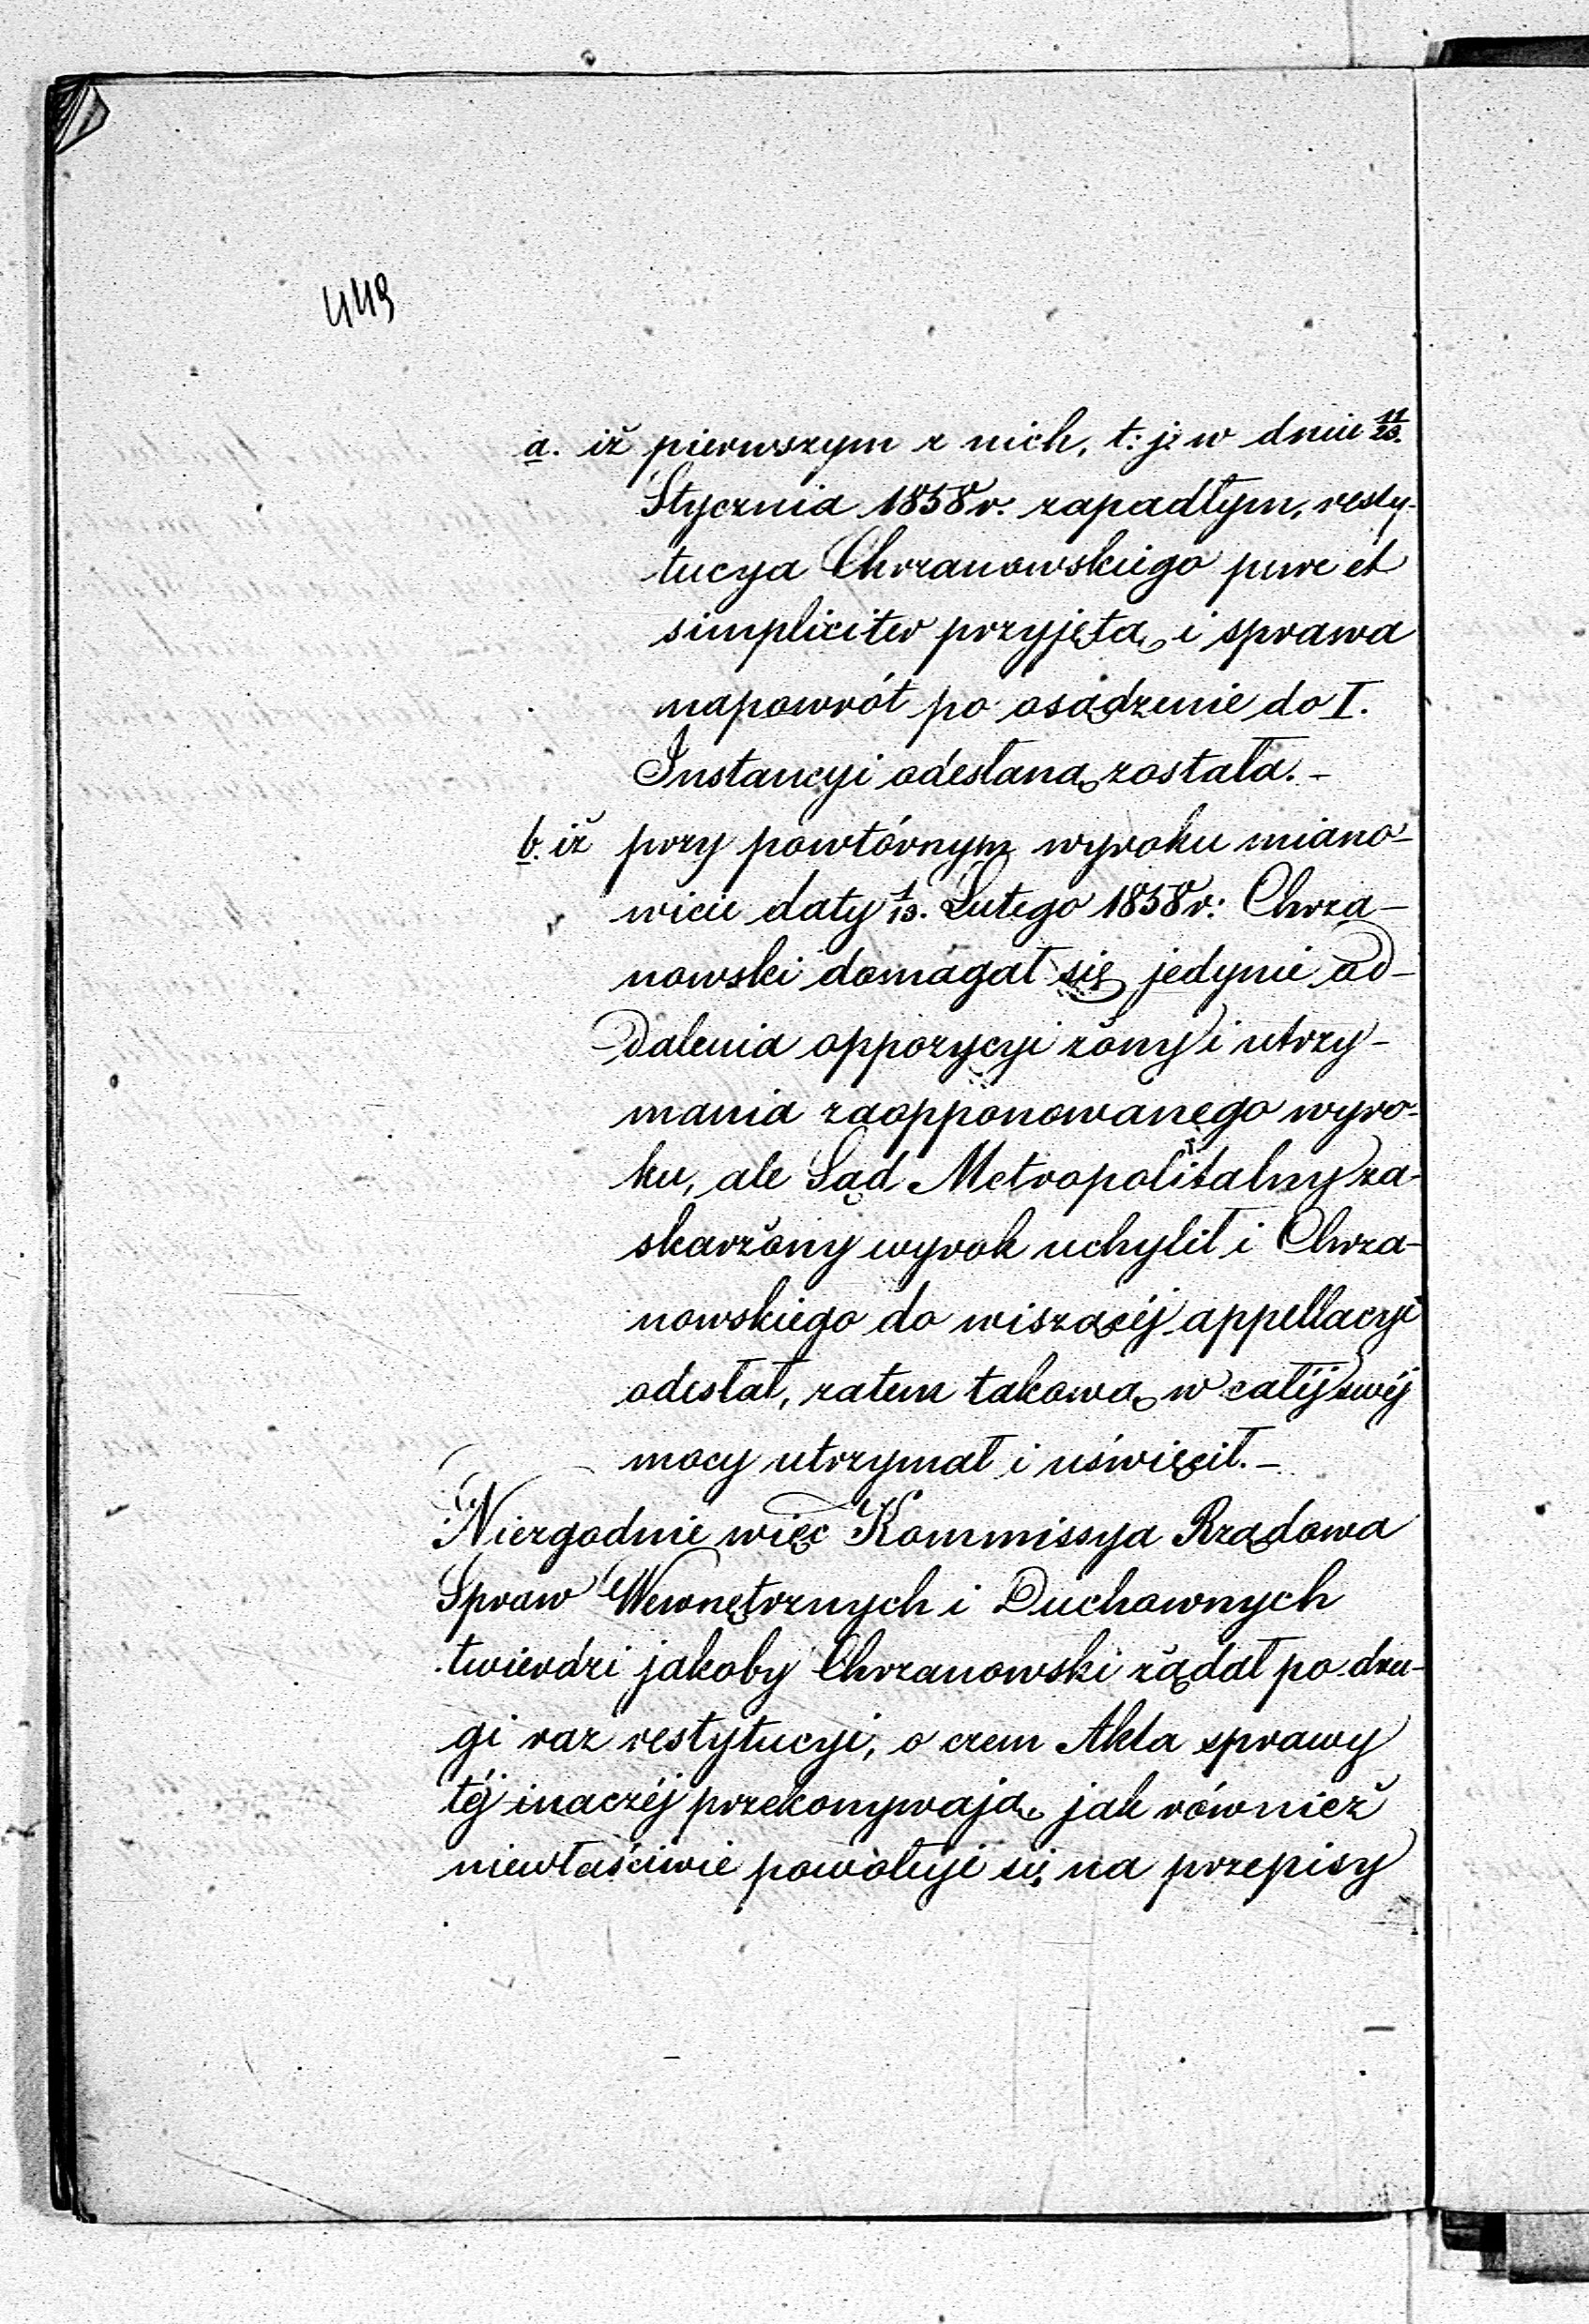 449
a. iż pierwszym z nich, t: j: w dniu 11/23.
Stycznia 1858 r. zapadłym, resty-
tucya Chrzanowskiego pure et
simpliciter przyjętą i sprawa
napowrót po osądzenie do I.
Instancyi odesłaną została. -
b. iż przy powtórnym wyroku miano-
wicie daty 1/13. Lutego 1858 r: Chrza-
nowski domagał się jedynie od-
dalenia oppozycyi żony i utrzy-
mania zaopponowanego wyro-
ku, ale Sąd Metropolitalny za-
skarżony wyrok uchylił i Chrza-
nowskiego do wiszącéj appellacyi
odesłał, zatem takową w całéj swéj
mocy utrzymał i uświęcił. -
Niezgodnie więc Kommissya Rządowa
Spraw Wewnętrznych i Duchownych
twierdzi jakoby Chrzanowski żądał po dru-
gi raz restytucyi, o czem Akta sprawy
téj inaczéj przekonywają, jak również
niewłaściwie powołuje się na przepisy